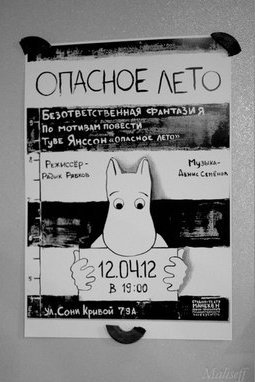 ОПАСНОЕ ЛЕТО
БЕЗОТВЕТСТВЕННАЯ ФАНТАЗИЯ
ПО МОТИВАМ ПОВЕСТИ
ТУВЕ ЯНССОН «ОПАСНОЕ ЛЕТО»
РЕЖИССЁР-
РАДИК РЯБКОВ
МУЗЫКА-
ДЕНИС СЕМЁНОВ
12.04.12
В 19:00
УЛ. СОНИ КРИВОЙ 79А
СТУДИЯ-ТЕАТР
МАНЕКЕН
Maliseff